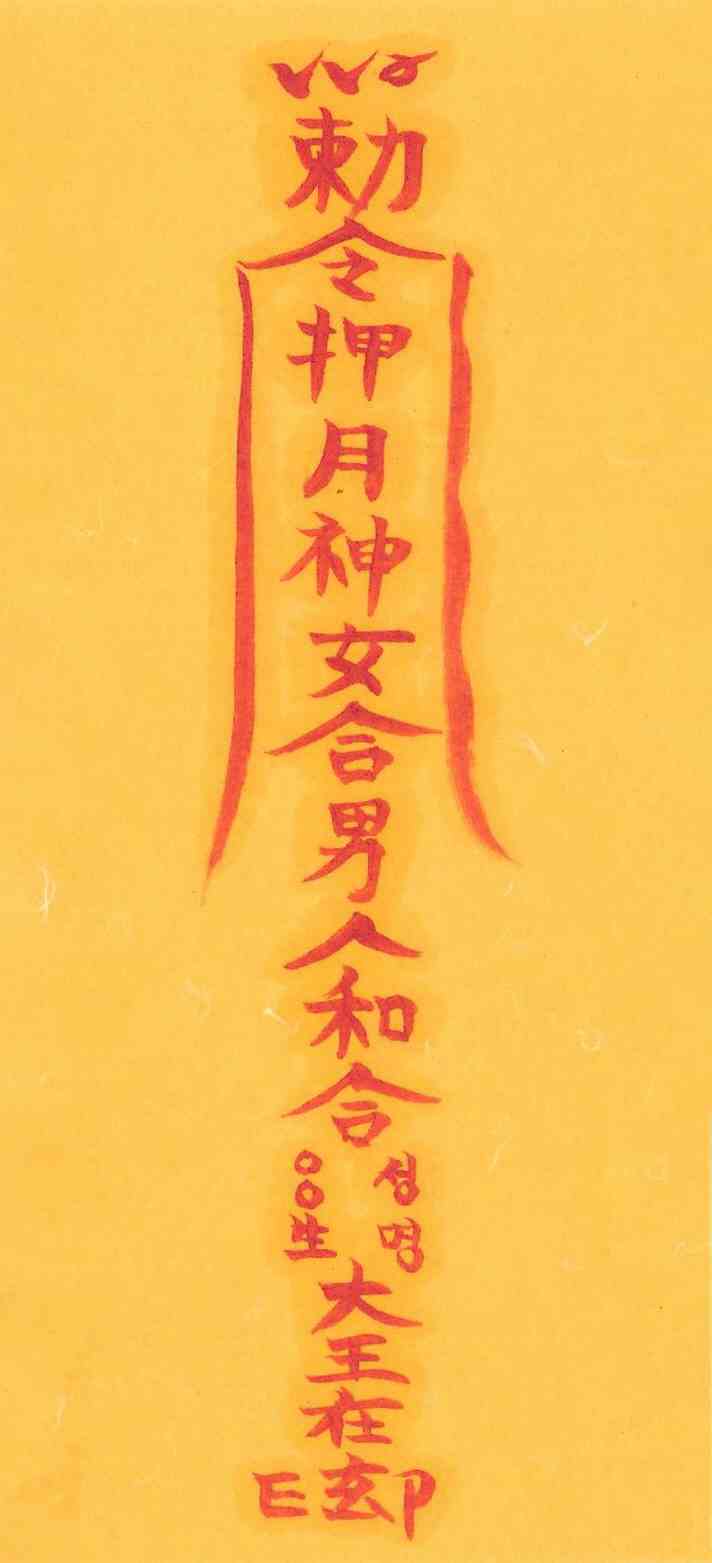 勅
令
押
月
神
女
合
男
人
和
合
성명
○○生
大
王
在